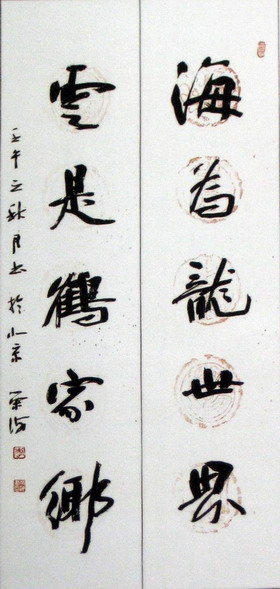 海为龍世界
雲是鶴家鄉
壬午之秋月书於北京